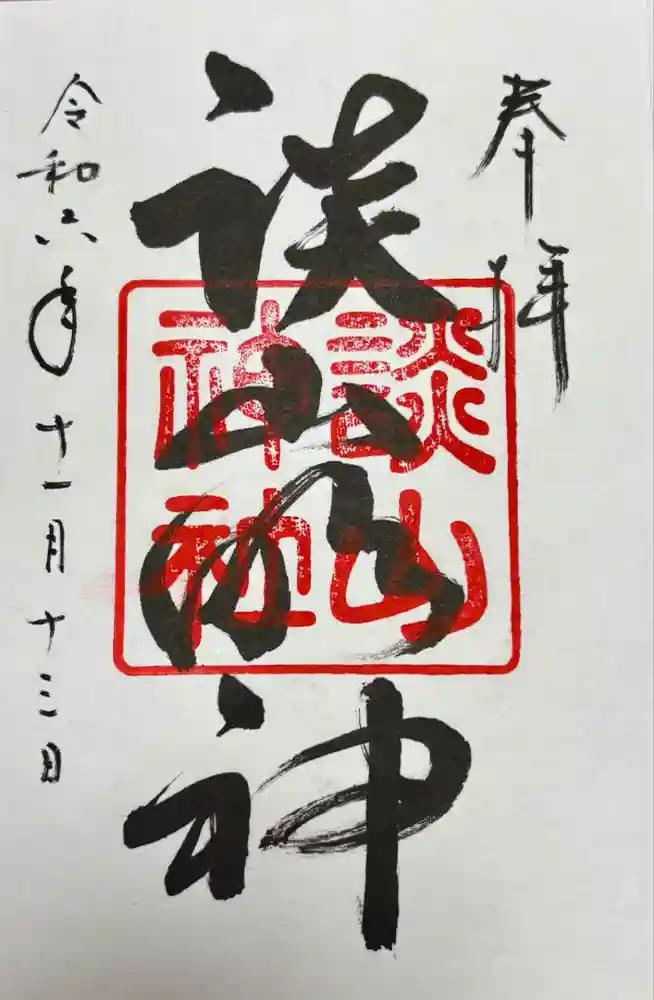 奉拝
談山神
談山
神社
令和六年十一月十三日